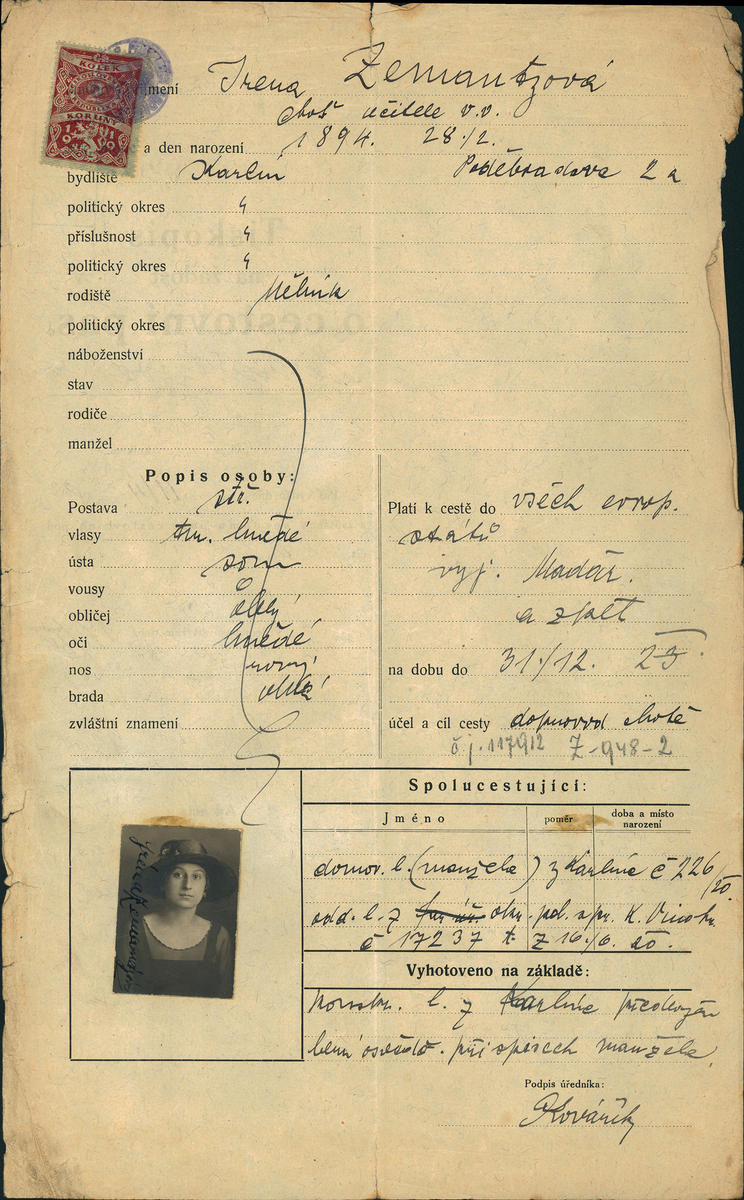 KOLEK
KORUNY
1919
jmení Irena Zemantzová
choť učitele v. v.
a den narození 1894. 28./2.
bydliště Karlín Poděbradova 2 a
politický okres "
příslušnost "
politický okres "
rodiště Mělník
politický okres
náboženství
stav
rodiče
manžel
Popis osoby:
Postava stř.
vlasy tm. hnědé
ústa soum
vousy 0
obličej
oči hnědé
nos
brada
zvláštní znamení
Platí k cestě do všech evrop.
států
vyj. Maďar.
a zpět
na dobu do 31./12. 23.
účel a cíl cesty doprovod chotě
č j. 117912 Z-948-2
Spolucestující:
Jméno poměr doba a místo
narození
domov. l. (manžela) z Karlína č 226/20
odd. l. z okr. pol. spr. K. Vinohr.
č 17237 z 16./6. 20.
Vyhotoveno na základě:
l. z Karlína
při spisech manžela
Podpis úředníka:
Kovářík